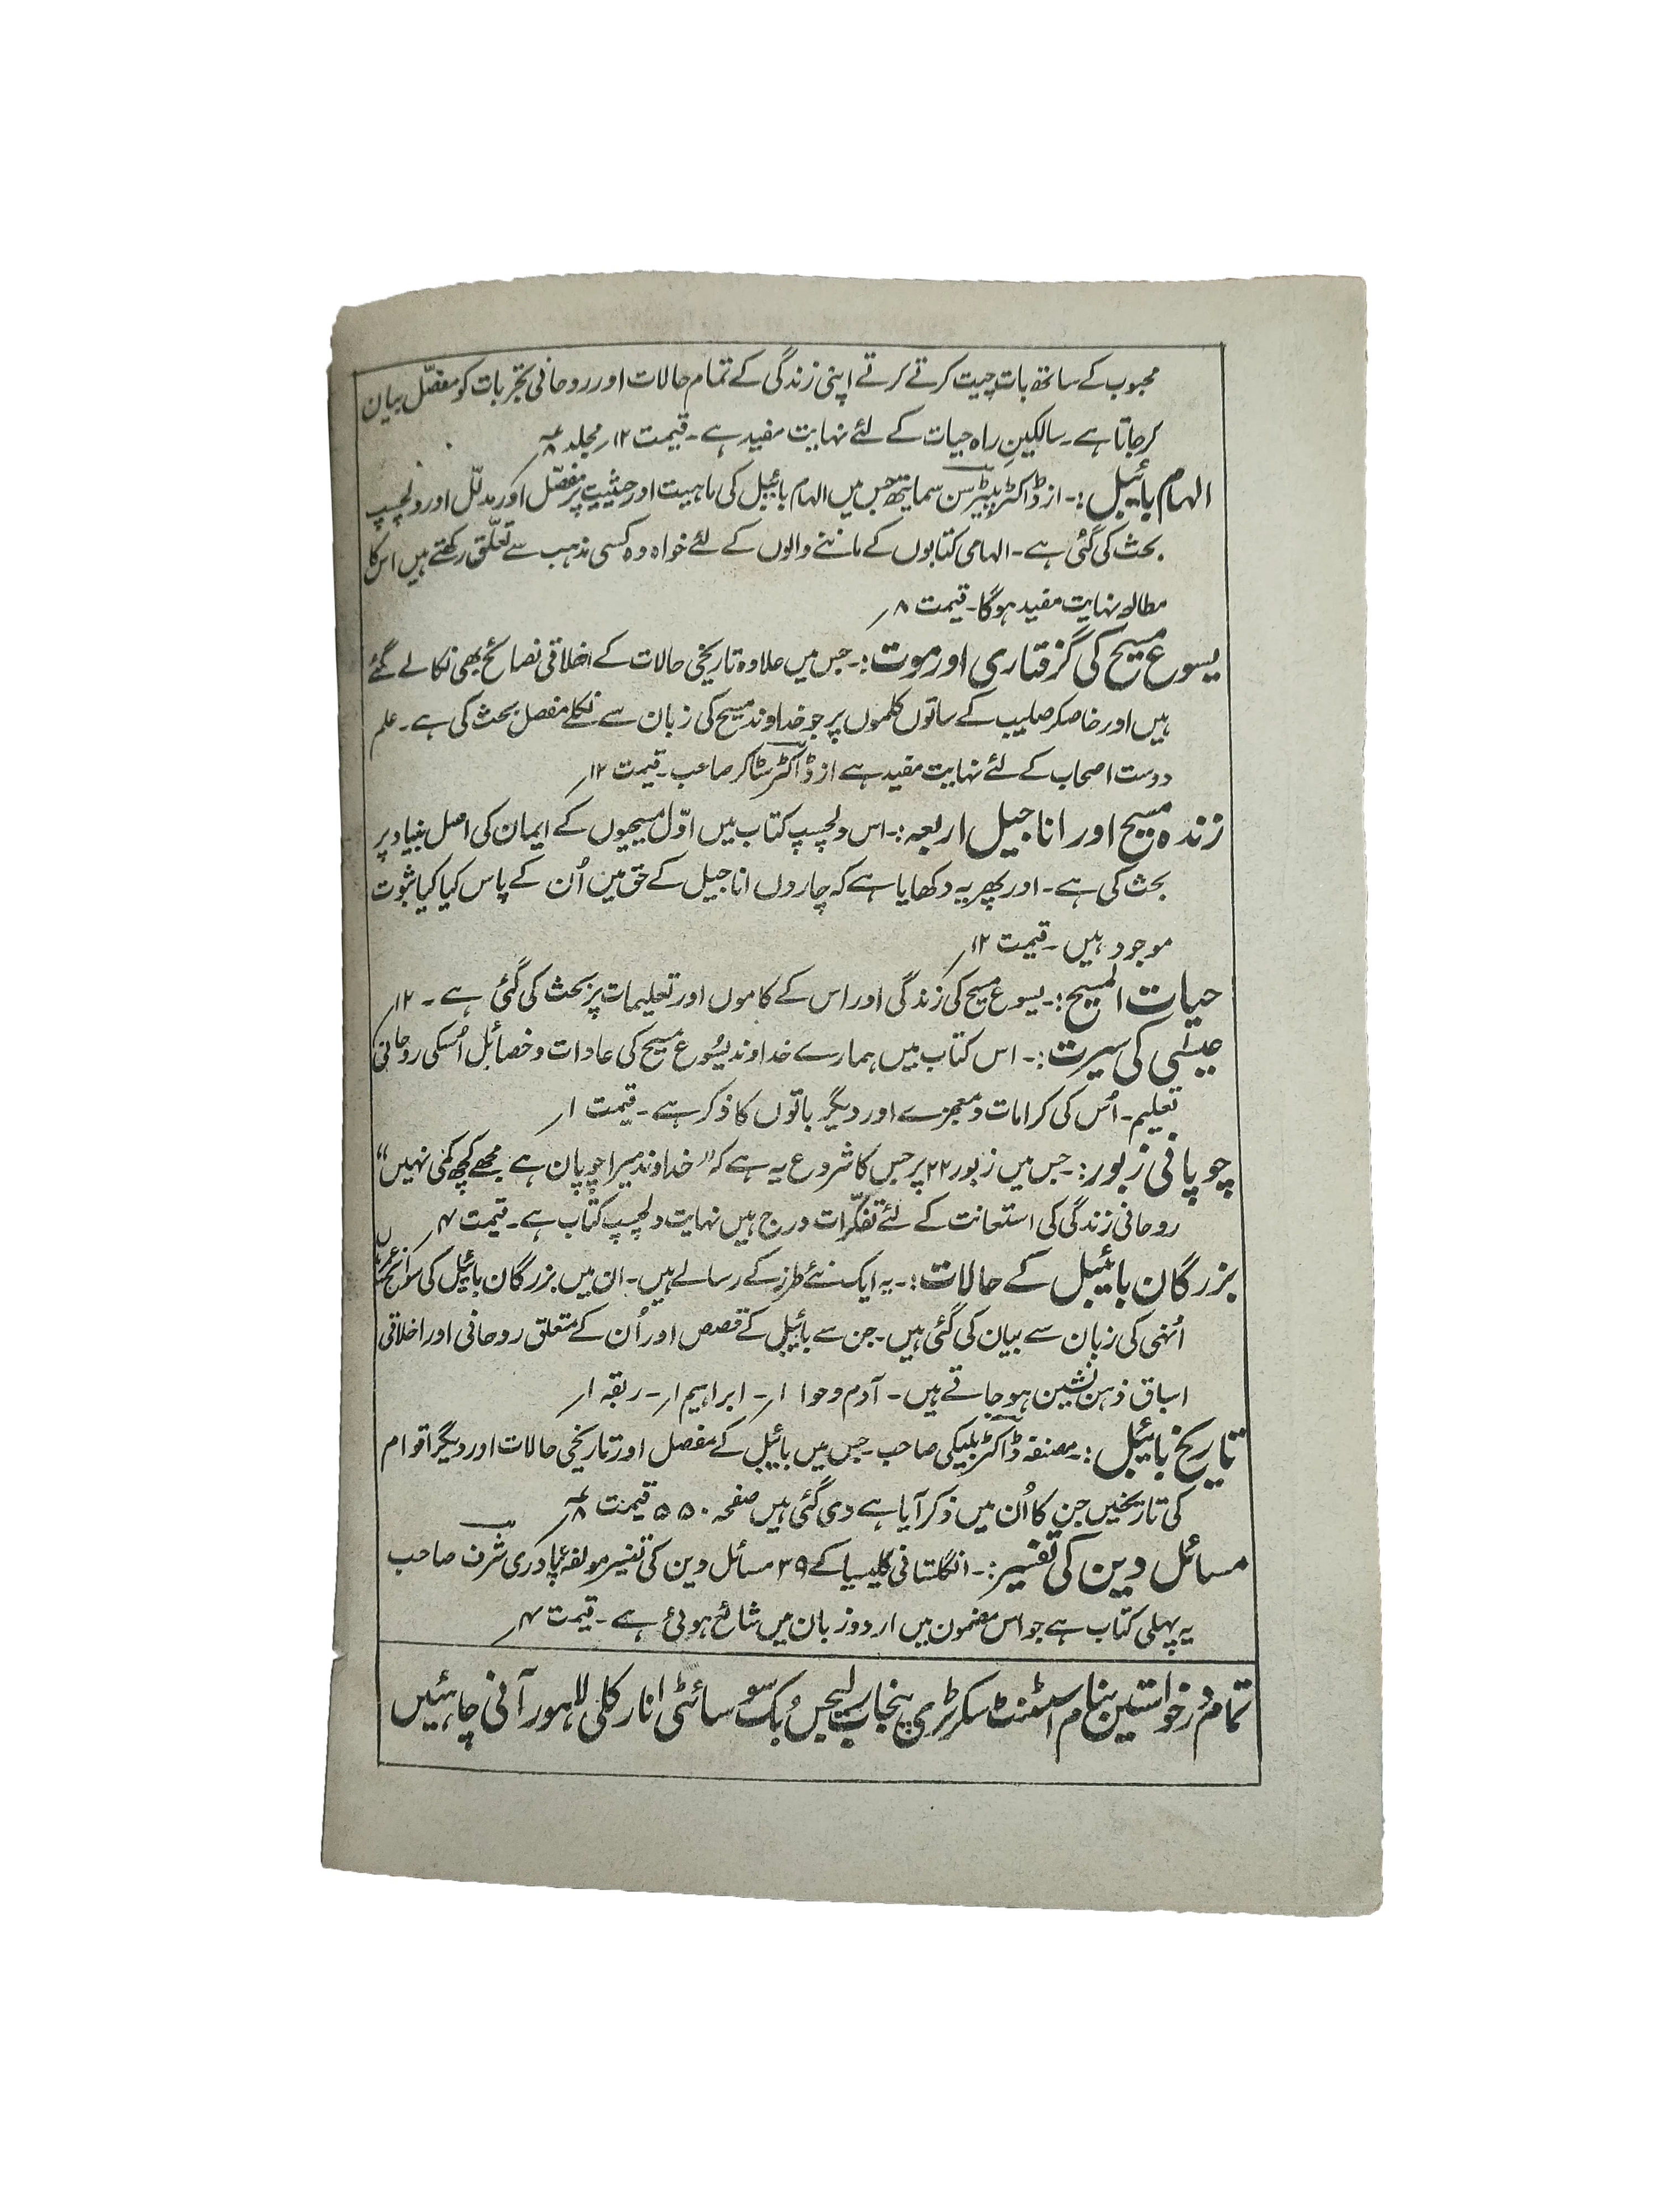 محبوب کے ساتھ بات چیت کرتے کرتے اپنی زندگی کے تمام حالات اور روحانی تجربات کو مفصّل بیان
کر جاتا ہے۔ سالکینِ راہ حیات کے لئے نہایت مفید ہے۔ قیمت ۱۲؍ مجلد
الہام بائیبل :۔ از ڈاکٹر پیٹرسن سمایتھ جس میں الہام بائیبل کی ماہیت اور حیثیت پر مفصّل اور مدلّل اور دلچسپ
بحث کی گئی ہے۔ الہامی کتابوں کے ماننے والوں کے لئے خواہ وہ کسی مذہب سے تعلّق رکھتے ہیں اس کا
مطالعہ نہایت مفید ہوگا۔ قیمت ۸؍
یسوع مسیح کی گرفتاری اور موت :۔ جس میں علاوہ تاریخی حالات کے اخلاقی نصائح بھی نکالے گئے
ہیں اور خاصکر صلیب کے ساتوں کلموں پر جو خداوند مسیح کی زبان سے نکلے مفصل بحث کی ہے۔ علم
دوست اصحاب کے لئے نہایت مفید ہے از ڈاکٹر سٹاکر صاحب۔ قیمت ۱۲؍
زندہ مسیح اور اناجیل اربعہ :۔ اس دلچسپ کتاب میں اوّل مسیحیوں کے ایمان کی اصل بنیاد پر
بحث کی ہے۔ اور پھر یہ دکھایا ہے کہ چاروں اناجیل کے حق میں اُن کے پاس کیا کیا ثبوت
موجود ہیں۔ قیمت ۱۲؍
حیات المسیح :۔ یسوع مسیح کی زندگی اور اس کے کاموں اور تعلیمات پر بحث کی گئی ہے۔ ۱۲؍
عیسٰی کی سیرت :۔ اس کتاب میں ہمارے خداوند یسُوع مسیح کی عادات و خصائل اُسکی روحانی
تعلیم۔ اُس کی کرامات و معجزے اور دیگر باتوں کا ذکر ہے۔ قیمت ۱؍
چوپانی زبور :۔ جس میں زبور ۲۳ پر جس کا شروع یہ ہے کہ ”خداوند میرا چوپان ہے مجھے کچھ کمی نہیں“
روحانی زندگی کی استعانت کے لئے تفکّرات درج ہیں نہایت دلچسپ کتاب ہے۔ قیمت ۴؍
بزرگان بائیبل کے حالات :۔ یہ ایک نئے طرز کے رسالے ہیں۔ ان میں بزرگان بائیبل کی سوانح عمریاں
اُنہی کی زبان سے بیان کی گئی ہیں۔ جن سے بائیبل کے قصص اور اُن کے متعلق روحانی اور اخلاقی
اسباق ذہن نشین ہو جاتے ہیں۔ آدم و حوا ۱؍۔ ابراہیم ۱؍۔ ربقہ ۱؍
تاریخ بائیبل :۔ مصنفہ ڈاکٹر بلیکی صاحب۔ جس میں بائیبل کے مفصل اور تاریخی حالات اور دیگر اقوام
کی تاریخیں جن کا اُن میں ذکر آیا ہے دی گئی ہیں صفحہ ۵۵۰ قیمت
مسائل دین کی تفسیر :۔ انگلستانی کلیسیا کے ۳۹ مسائل دین کی تفسیر مولفہ پادری شرف صاحب
یہ پہلی کتاب ہے جو اس مضمون میں اردو زبان میں شائع ہوئی ہے۔ قیمت ۴؍
تمام درخواستیں بنام اسسٹنٹ سکرٹری پنجاب ریلیجس بُک سوسائٹی انارکلی لاہور آنی چاہئیں